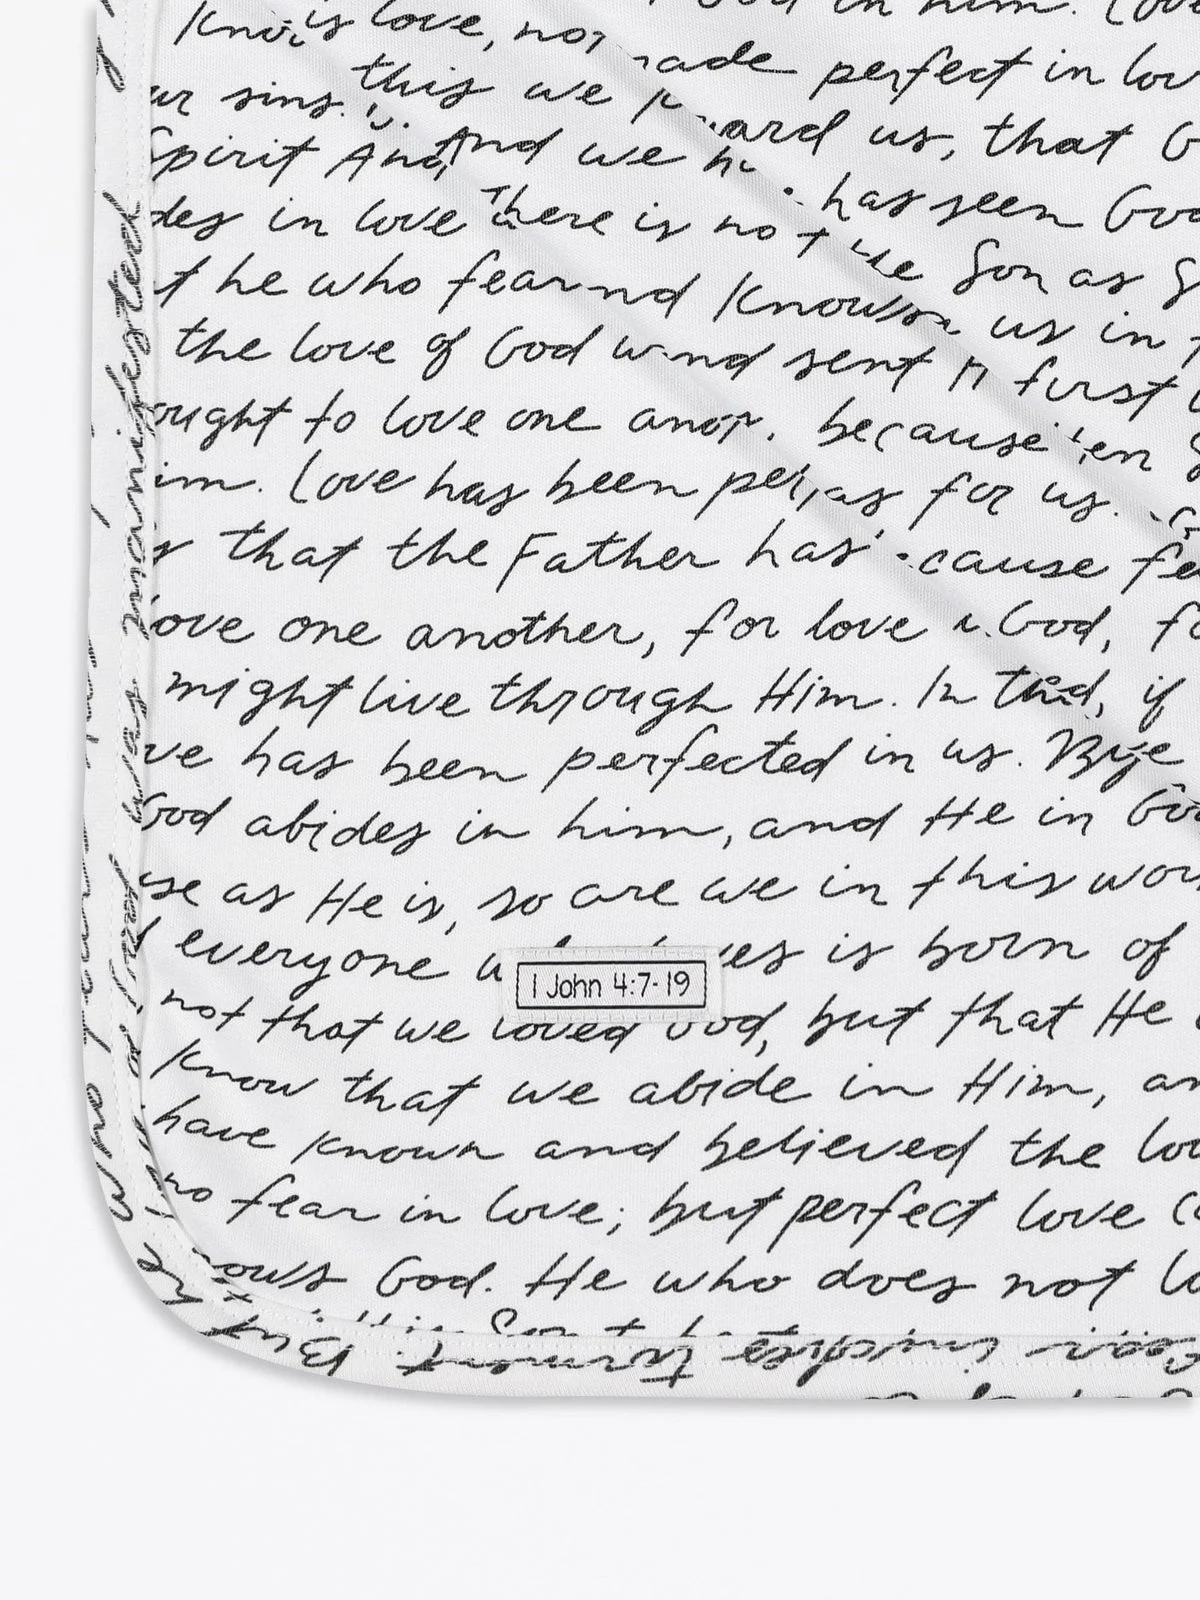 God in him. Love
is love, not made perfect in lov
ur sins. this we
ard us, that G
Spirit And And we has seen God
des in love There is no the Son as S
t he who fear nd knows us in
the love of God w nd sent first
ought to love one ano because en
im. Love has been per as for us.
that the Father has cause fe
love one another, for love God, fo
might live through Him. In this if
ve has been perfected in us. By
God abides in him, and He in God
se as He is, so are we in this wor
everyone ves is born of
1 John 4:7-19
not that we loved God, but that He
know that we abide in Him, an
have known and believed the lov
no fear in love; but perfect love ca
nows God. He who does not lo
was manifested
who
But